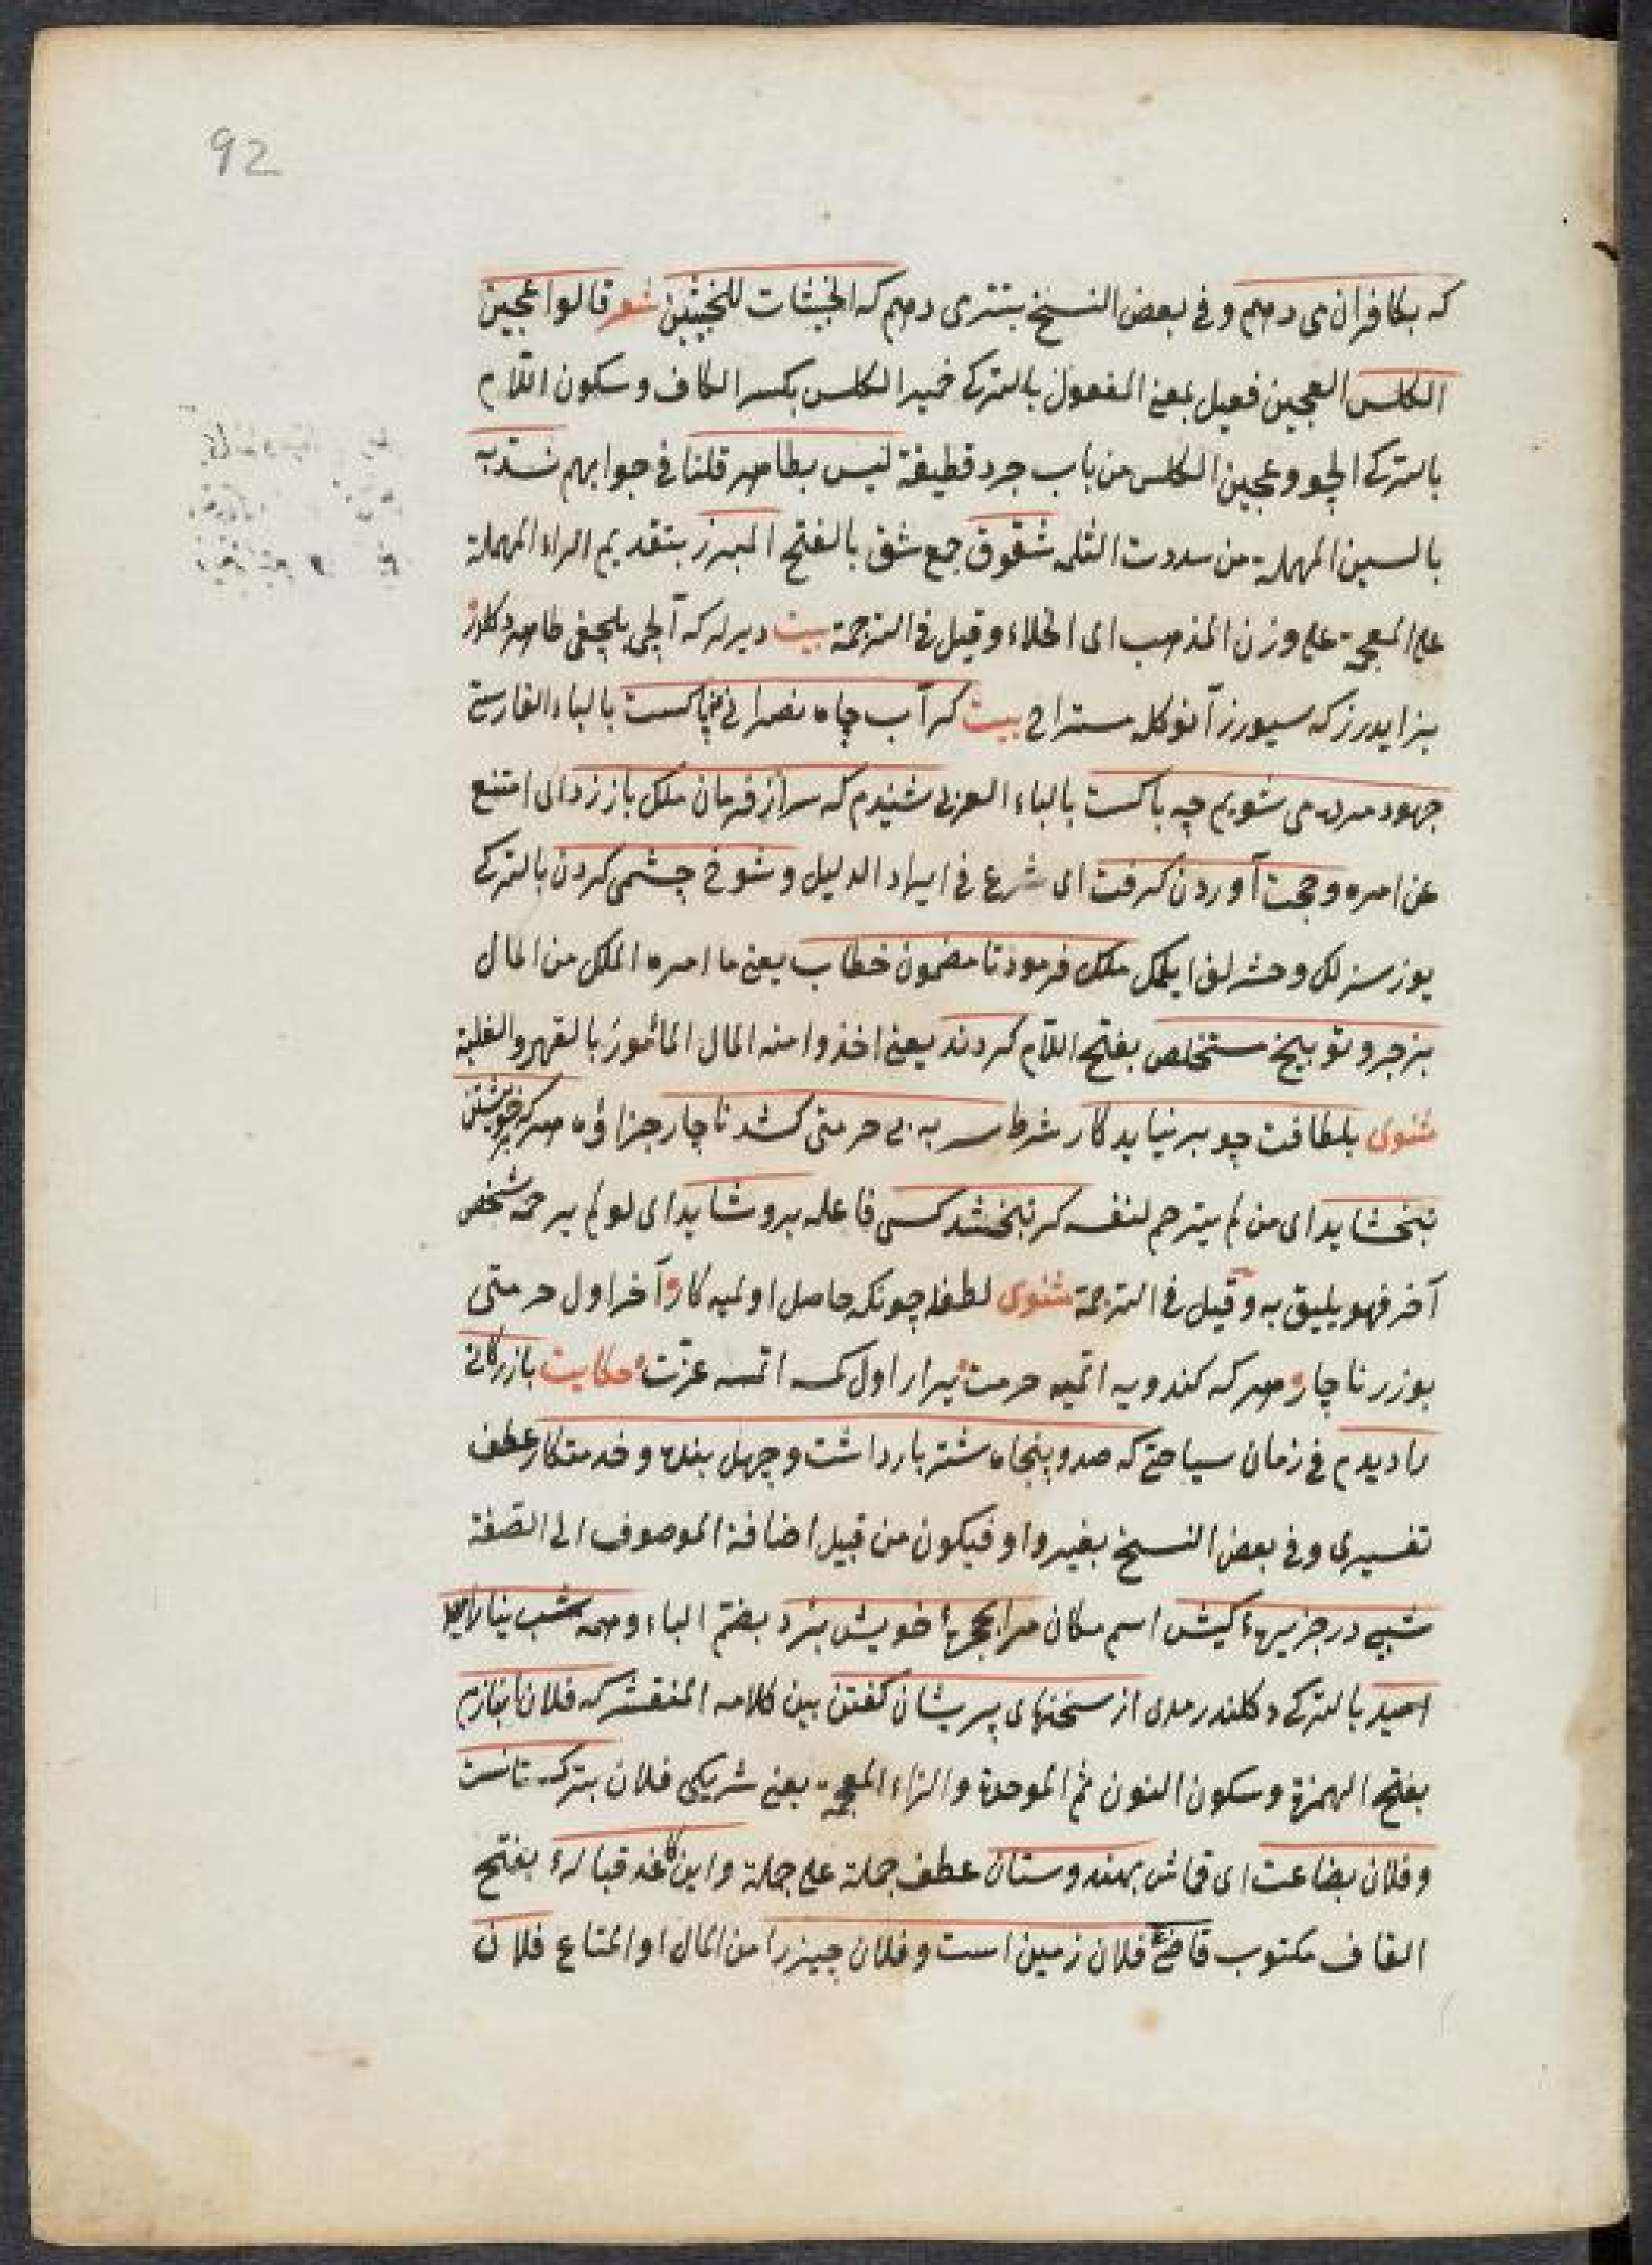 92
که بکافران می دهم وفی بعض النسخ بتتری دهم که الخبیثات للخبیثین شعر قالوا عجین
الکلس العجین فعیل بمعنی المفعول بالترکی خمیر الکلس بکسر الکاف وسکون اللام
بالترکی الچو وعجین الکلس من باب جرد قطیفة لیس بطاهر قلنا فی جوابهم نسدّ به
بالسین المهملة من سددت الثلمه شقوق جمع شق بالفتح المبرز بتقدیم الراء المهملة
علی المعجمة علی وزن المذهب ای الخلاء وقیل فی الترجمة بیت دیرلر که آلچی بلچغی طاهر دکلدر
بز ایدرز که سیورز آنوکله مستراحی بیت کر آب چاه نصرانی نه پاکست بالباء الفارسی
جهود مرده می شویم چه باکست بالباء العربی شنیدم که سر از فرمان ملک باز زد ای امتنع
عن امره وحجت آوردن کرفت ای شرع فی ایراد الدلیل وشوخ چشمی کردن بالترکی
یوزسزلک وحشرلق ایلمک ملک فرمود تا مضمون خطاب یعنی ما امره الملک من المال
بزجر وتوبیخ مستخلص بفتح اللام کردند یعنی اخذوا منه المال المأمور بالقهر والغلبة
مثنوی بلطافت چو بر نیاید کار شرط سر به بی حرمتی کشد ناچار جزاؤه هر که بر خویشتن
نبخشاید ای من لم یترحم لنفسه کر نبخشد کسی فاعله برو شاید ای لو لم یرحمه شخص
آخر فهو یلیق به وقیل فی الترجمة مثنوی لطفله چونکه حاصل اولمیه کار آخر اول حرمتی
بوزر ناچار هر که کندویه اتمیه حرمت یرار اول کسه اتمسه عزّت حکایت بازرکانی
را دیدم فی زمان سیاحتی که صد وپنجاه شتر بار داشت وچهل بنده وخدمتکار عطف
تفسیری وفی بعض النسخ بغیر واو فیکون من قبیل اضافة الموصوف الی الصفة
شبی در جزیرهٔ کیش اسم مکان مرا بحجرهٔ خویش ببرد بضم الباء وهمه شب نیارامید
بالترکی دکلندرمدی از سخنهای پریشان کفتن بین کلامه المنقشر که فلان انبازم
بفتح الهمزة وسکون النون ثم الموحدة والزاء المعجمة یعنی شریکی فلان بترکستانست
وفلان بضاعت ای قماش بهندوستان عطف جملة علی جملة واین کاغد قبالهٔ بفتح
القاف مکتوب قاضی فلان زمین است وفلان چیز را من المال او المتاع فلان